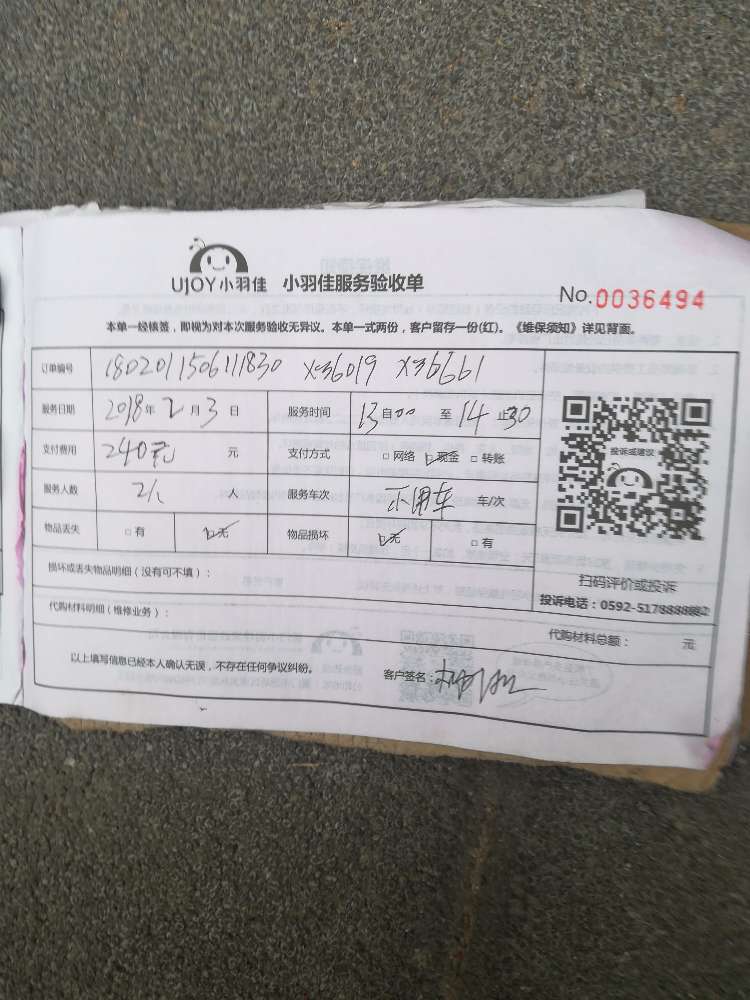 UJOY小羽佳 小羽佳服务验收单
No.0036494
本单一经核签，即视为对本次服务验收无异议。本单一式两份，客户留存一份(红)。《维保须知》详见背面。
订单编号 1802011506111830 X36019 X36661
服务日期 2018年2月3日 服务时间 13自00至14止30
支付费用 240元 元 支付方式 □网络 □现金 □转账
服务人数 2人 人 服务车次 不用车 车/次
物品丢失 □有 □无 物品损坏 □无 □有
投诉或建议
扫码评价或投诉
损坏或丢失物品明细（没有可不填）：
投诉电话：0592-5178888
代购材料明细（维修业务）： 代购材料总额： 元
以上填写信息已经本人确认无误，不存在任何争议纠纷。 客户签名：